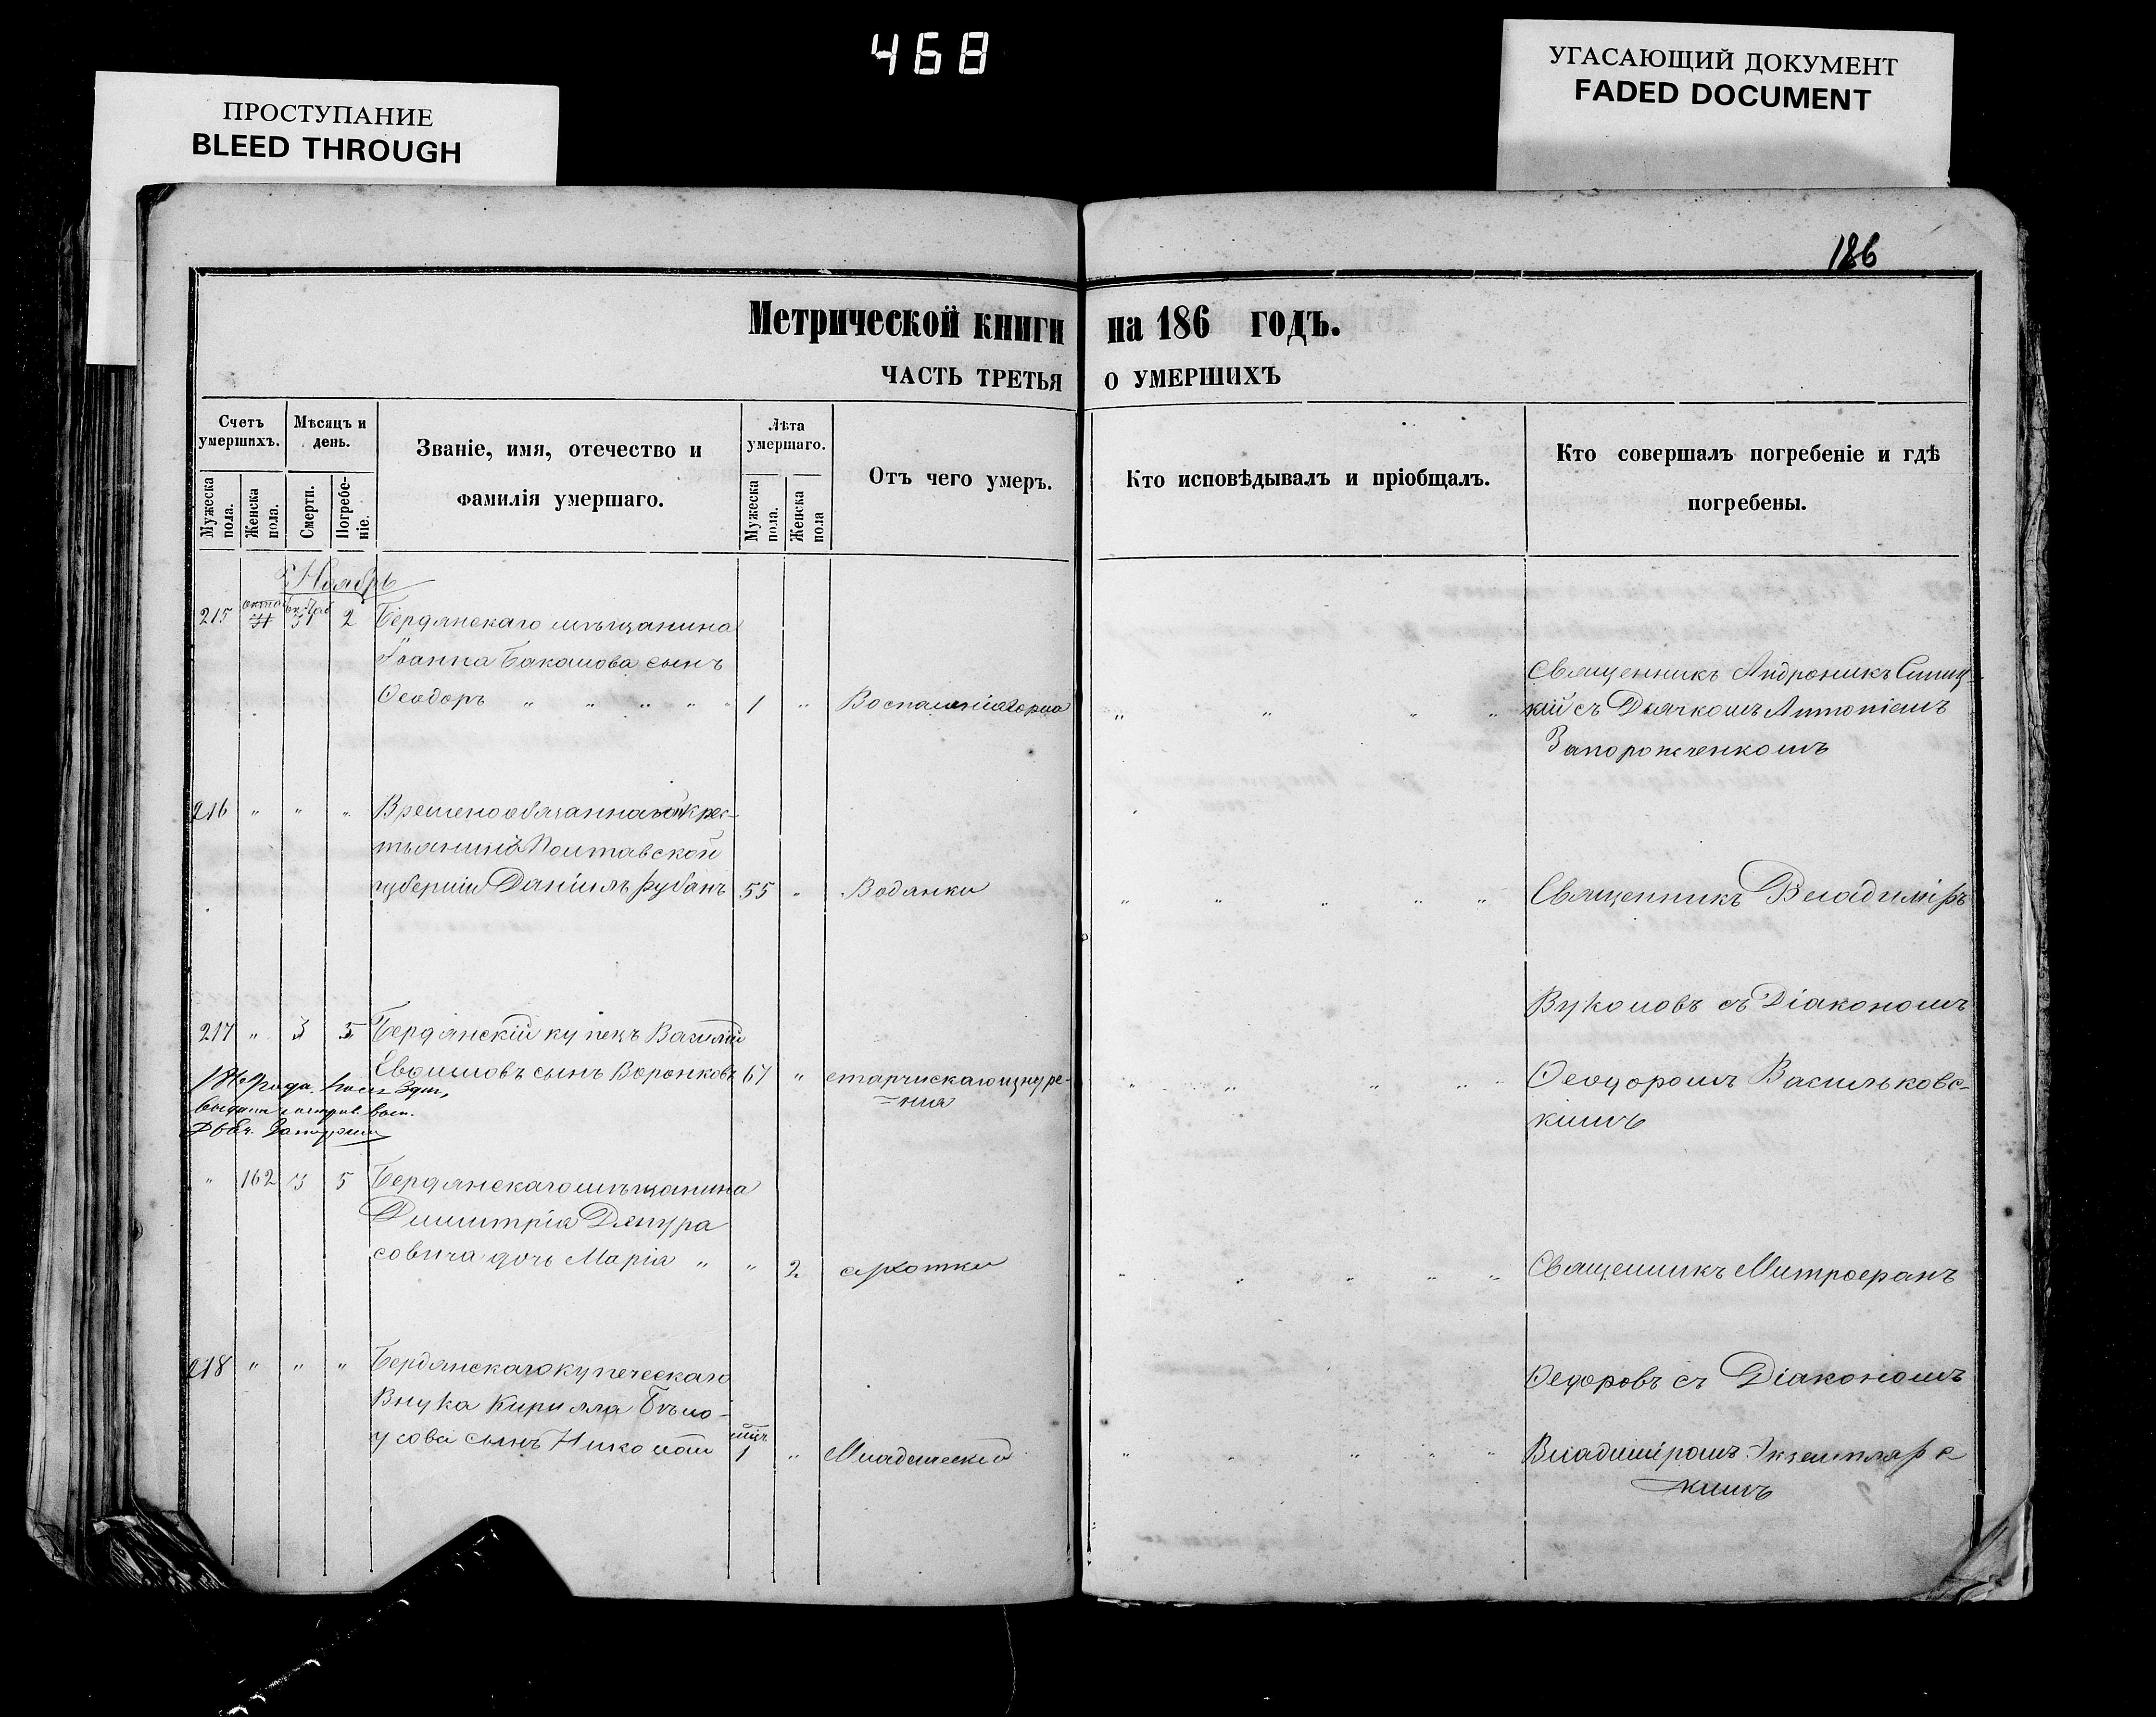 468
ПРОСТУПАНИЕ
BLEED THROUGH
УГАСАЮЩИЙ ДОКУМЕНТ
FADED DOCUMENT
186
Метрической книги на 186 годъ.
ЧАСТЬ ТРЕТЬЯ О УМЕРШИХЪ
Счетъ умершихъ.
Мужеска пола.
Женска пола.
Мѣсяцъ и день.
Смерти.
Погребеніе.
Званіе, имя, отечество и
фамилія умершаго.
Лѣта умершаго.
Мужеска пола.
Женска пола
Отъ чего умеръ.
Кто исповѣдывалъ и пріобщалъ.
Кто совершалъ погребеніе и гдѣ
погребены.
Ноябрь
215 31 2 Бердянскаго мѣщанина
Іоанна Бакалова сынъ
Ѳеодоръ " " " " " 1 " Воспаленія горла " " " "
Священникъ Андроникъ Синиц-
кій съ Дьячкомъ Антоніемъ
Запорожченкомъ
216 " " " Временообязанной крес-
тьянинъ Полтавской
губерніи Даніилъ Рубанъ 55 " Водянки " " " " "
Священникъ Владиміръ
Вуколовъ съ Діакономъ
Ѳеодоромъ Васильковс-
кимъ
217 " 3 5 Бердянскій купецъ Василій
Евѳимовъ сынъ Воронковъ 67 " старческаго изнуре-
=нія " " " "
" 162 3 5 Бердянскаго мѣщанина
Димитрія
совича дочь Марія " " 2 сухотки " " " " "
Священникъ Митрофанъ
Ѳедоровъ съ Діакономъ
Владиміромъ Экземплярс
кимъ
218 " " " Бердянскаго купеческаго
Внука Кирилла Бѣло-
усова сынъ Николай 1 " Младенческой " " " "